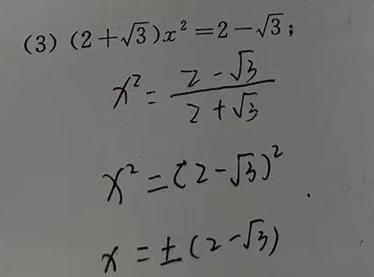 (3) (2+√3)x²=2-√3;
x² = (2-√3)/(2+√3)
x² = (2-√3)²
x = ±(2-√3)